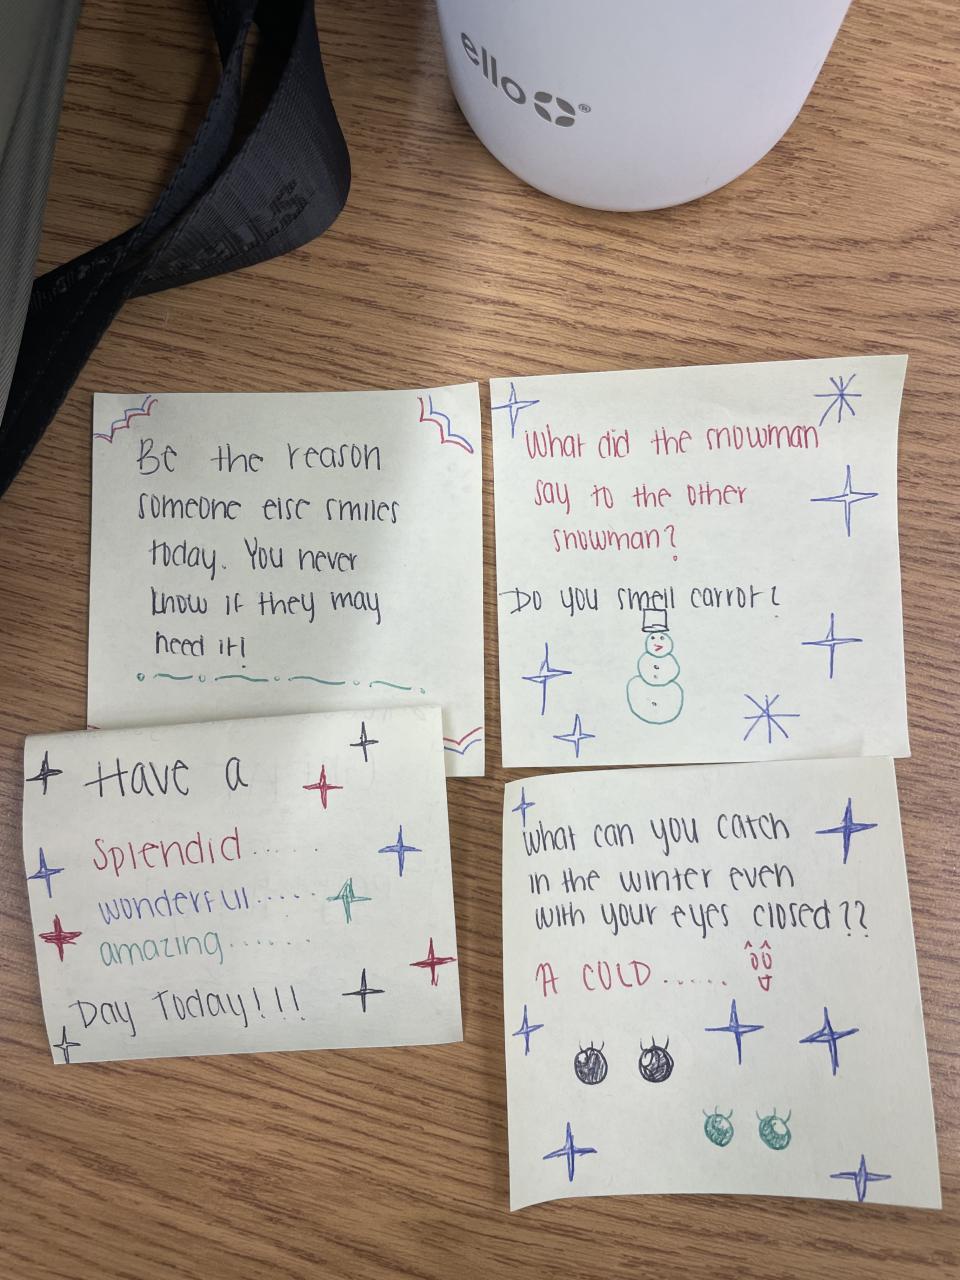 ello®
Be the reason
someone else smiles
today. You never
know if they may
need it!
What did the snowman
say to the other
snowman?
Do you smell carrot?
Have a
Splendid.....
wonderful.....
amazing......
Day Today!!!
What can you catch
in the winter even
with your eyes closed??
A COLD......